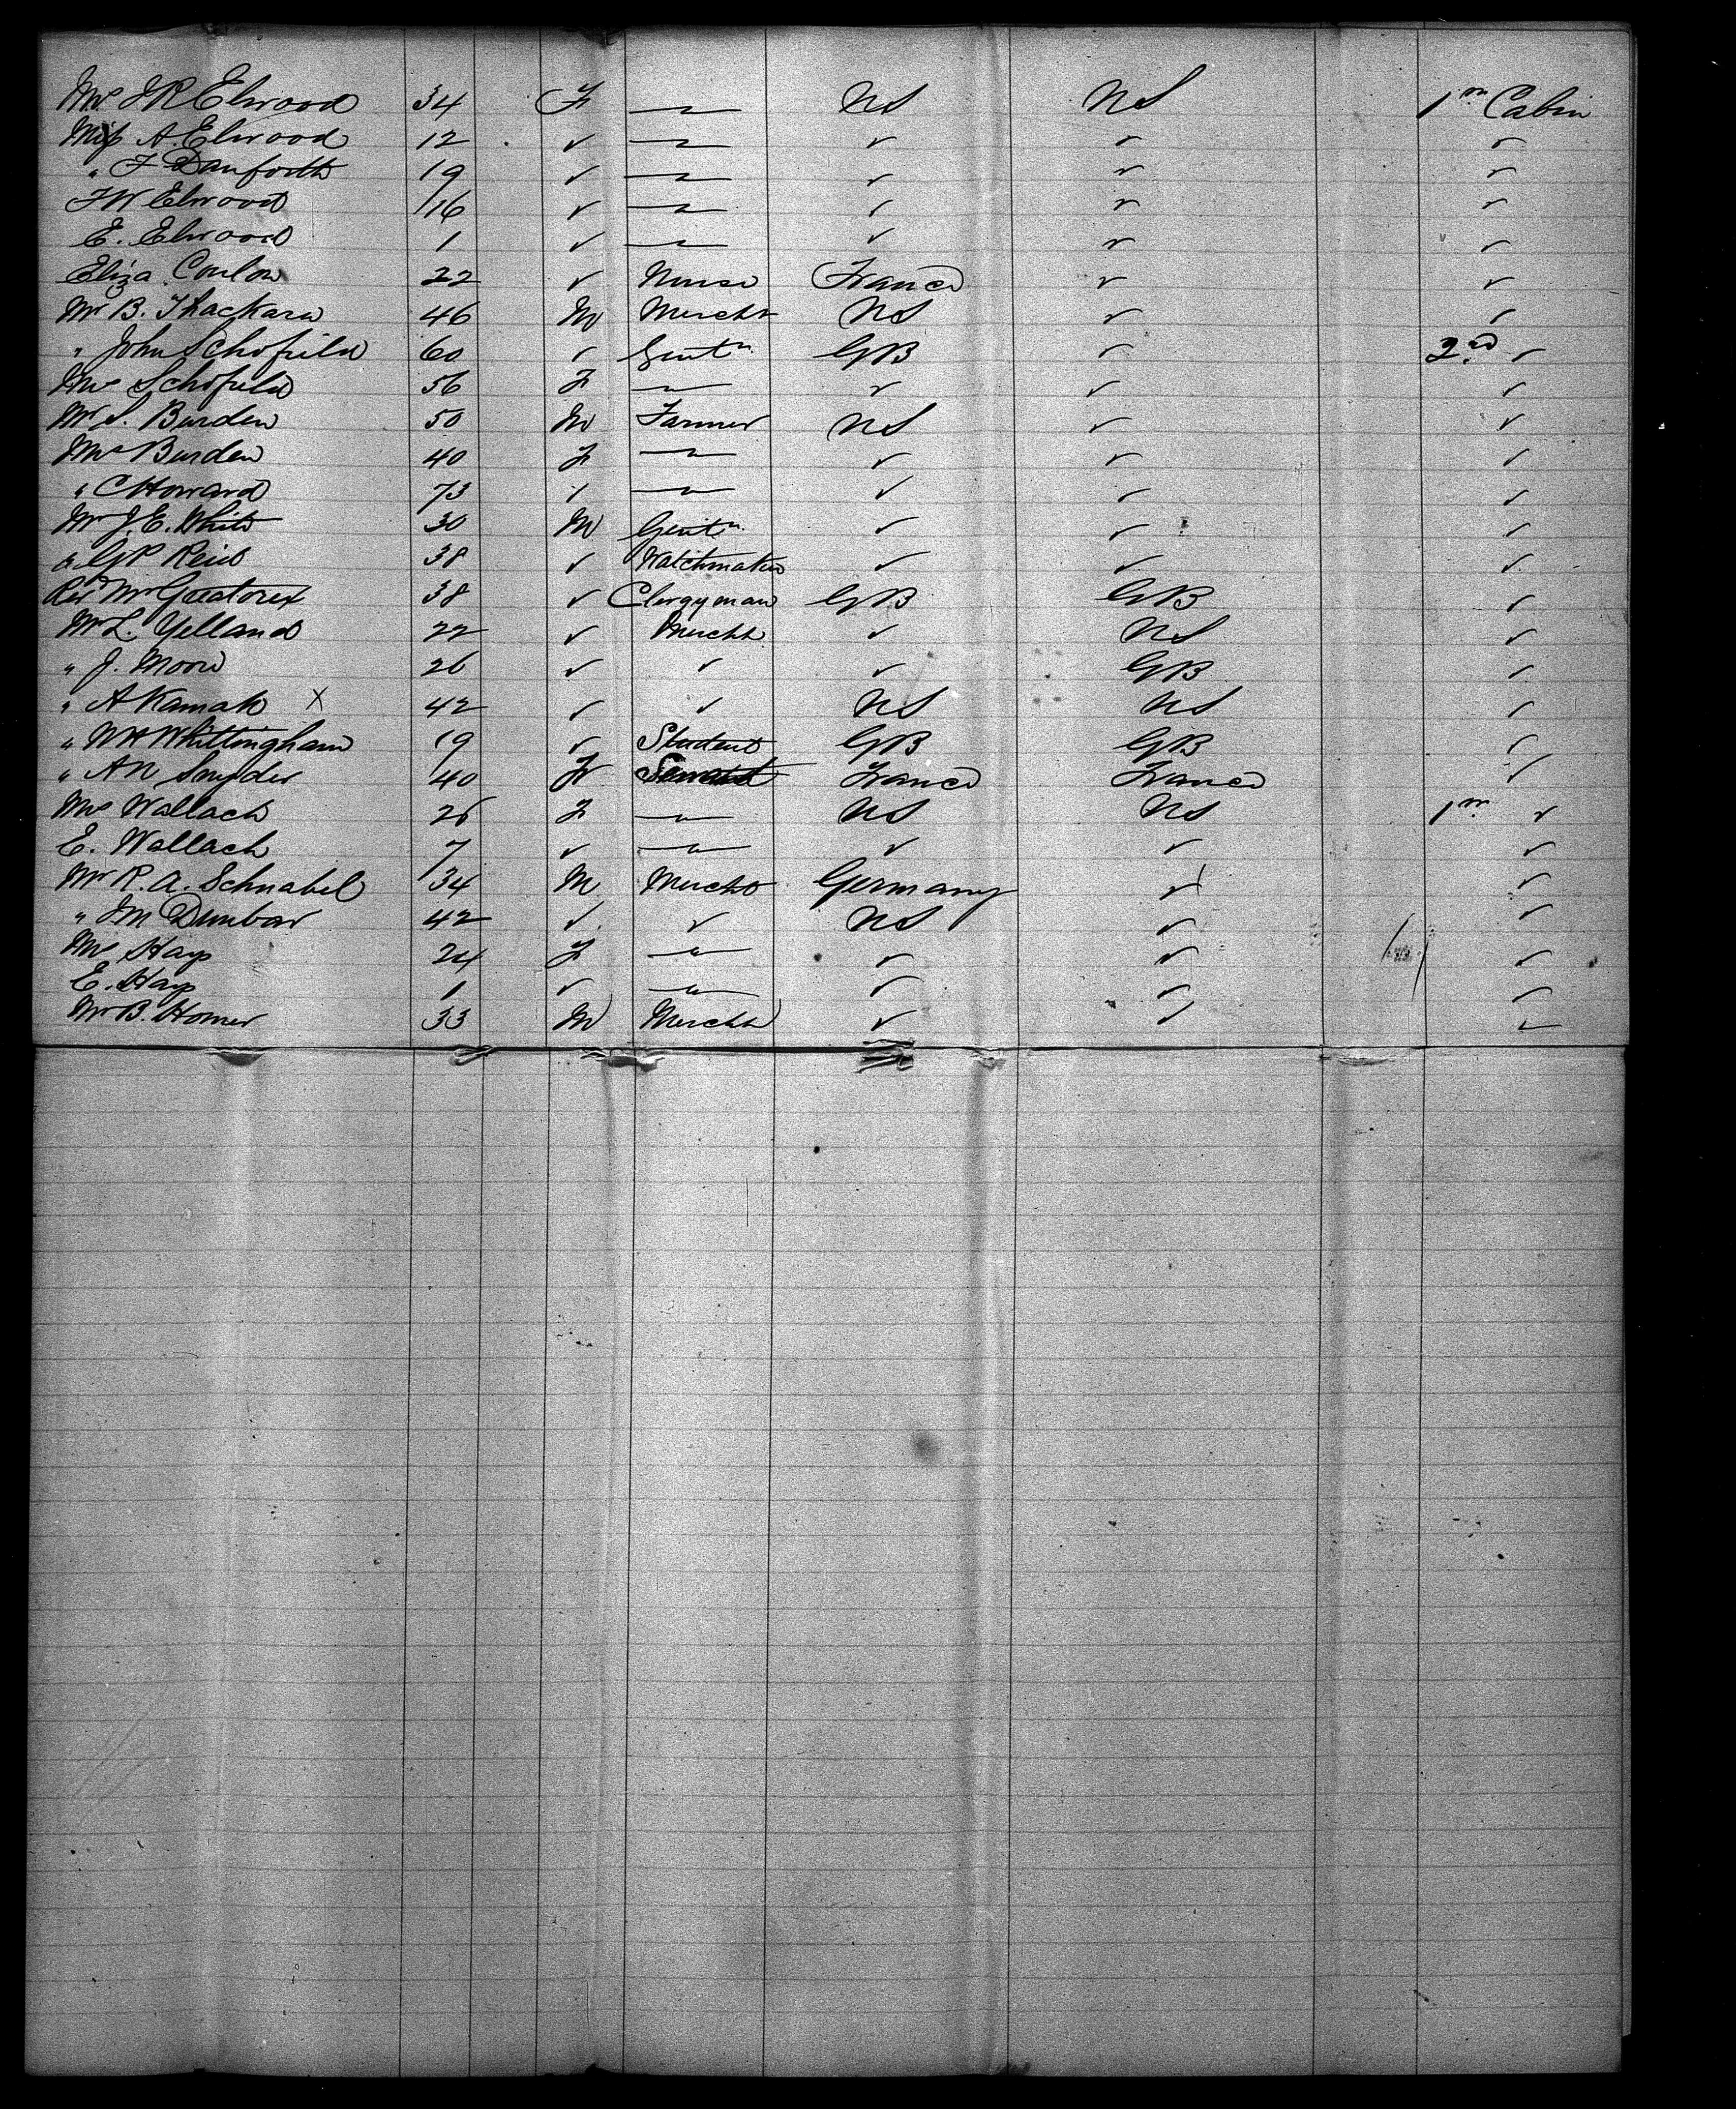 Mrs J R Elwood 34 F — US US 1st Cabin
Miss A. Elwood 12 ✓ — ✓ ✓ ✓
" F Danforth 19 ✓ — ✓ ✓ ✓
F W Elwood 16 ✓ — ✓ ✓ ✓
E. Elwood 1 ✓ — ✓ ✓ ✓
Eliza Conlon 22 ✓ Nurse France ✓ ✓
Mr B. Thackara 46 M Mercht US ✓ ✓
" John Schofield 60 ✓ Gentn GB ✓ 2nd ✓
Mrs Schofield 56 F — ✓ ✓ ✓
Mr S. Burden 50 M Farmer US ✓ ✓
Mrs Burden 40 F — ✓ ✓ ✓
" C Howard 73 ✓ — ✓ ✓ ✓
Mr J. E. White 30 M Gentn ✓ ✓ ✓
" G P Reid 38 ✓ Watchmaker ✓ ✓ ✓
Rev Mr Greatorex 38 ✓ Clergyman GB GB ✓
Mr L. Yelland 22 ✓ Mercht ✓ US ✓
" J. Moore 26 ✓ ✓ ✓ GB ✓
" A Kamak X 42 ✓ ✓ US US ✓
" W H Whittingham 19 ✓ Student GB GB ✓
" A N Snyder 40 Servant France France ✓
Mrs Wallach 26 F — US US 1st ✓
E. Wallach 7 ✓ — ✓ ✓ ✓
Mr R. A. Schnabel 34 M Mercht Germany ✓ ✓
" J M Dunbar 42 ✓ ✓ US ✓ ✓
Mrs Hays 24 F — ✓ ✓ ✓
E. Hays 1 ✓ — ✓ ✓ ✓
Mr B. Homer 33 M Mercht ✓ ✓ ✓